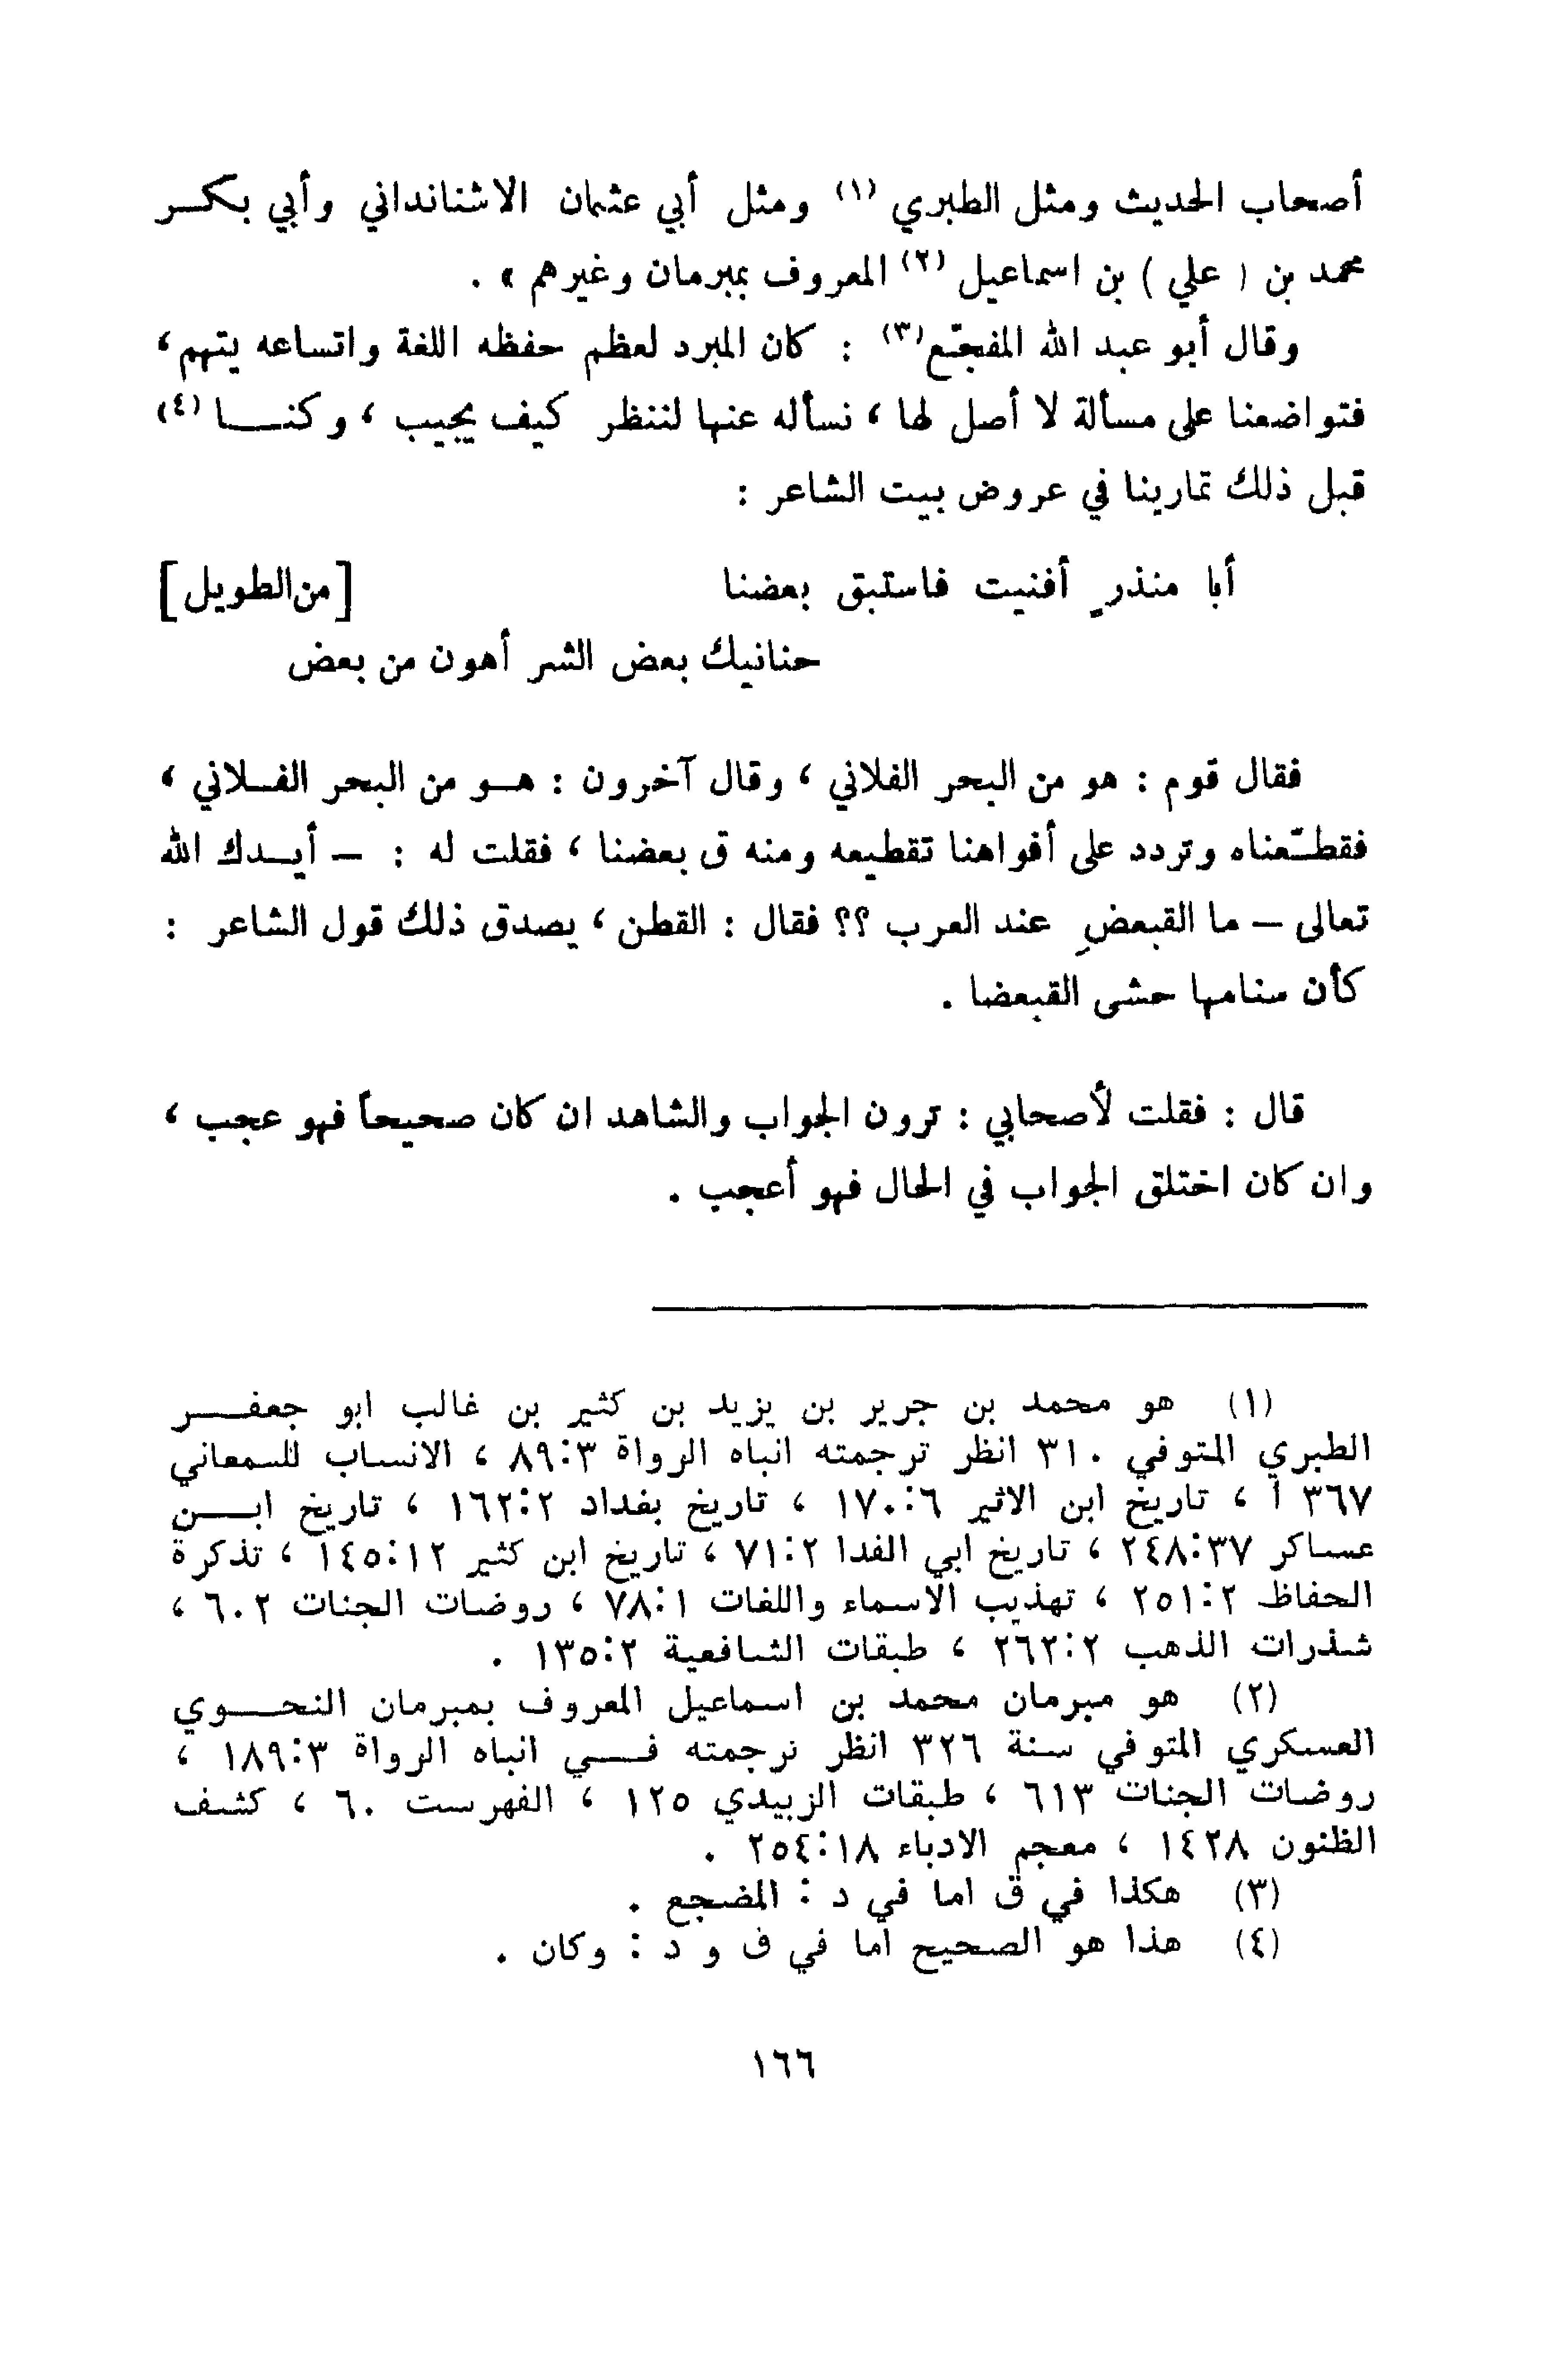 أصحاب الحديث ومثل الطبري (١) ومثل أبي عثمان الاشنانداني وأبي بكر
محمد بن ( علي ) بن اسماعيل (٢) المعروف بمبرمان وغيرهم » .
وقال أبو عبد الله المفجّع(٣) : كان المبرد لعظم حفظه اللغة واتساعه يتهم ،
فتواضعنا على مسألة لا أصل لها ، نسأله عنها لننظر كيف يجيب ، وكنا (٤)
قبل ذلك تمارينا في عروض بيت الشاعر :
أبا منذرٍ أفنيت فاستبق بعضنا [من الطويل]
حنانيك بعض الشر أهون من بعض
فقال قوم : هو من البحر الفلاني ، وقال آخرون : هو من البحر الفلاني ،
فقطّعناه وتردد على أفواهنا تقطيعه ومنه ق بعضنا ، فقلت له : – أيدك الله
تعالى – ما القبعضِ عند العرب ؟؟ فقال : القطن ، يصدق ذلك قول الشاعر :
كأن سنامها حشى القبعضا .
قال : فقلت لأصحابي : ترون الجواب والشاهد ان كان صحيحاً فهو عجب ،
وان كان اختلق الجواب في الحال فهو أعجب .
(١) هو محمد بن جرير بن يزيد بن كثير بن غالب ابو جعفر
الطبري المتوفي ٣١٠ انظر ترجمته انباه الرواة ٨٩:٣ ، الانساب للسمعاني
٣٦٧ أ ، تاريخ ابن الاثير ١٧٠:٦ ، تاريخ بغداد ١٦٢:٢ ، تاريخ ابن
عساكر ٢٤٨:٣٧ ، تاريخ ابي الفدا ٧١:٢ ، تاريخ ابن كثير ١٤٥:١٢ ، تذكرة
الحفاظ ٢٥١:٢ ، تهذيب الاسماء واللغات ٧٨:١ ، روضات الجنات ٦٠٢ ،
شذرات الذهب ٢٦٢:٢ ، طبقات الشافعية ١٣٥:٢ .
(٢) هو مبرمان محمد بن اسماعيل المعروف بمبرمان النحوي
العسكري المتوفي سنة ٣٢٦ انظر ترجمته في انباه الرواة ١٨٩:٣ ،
روضات الجنات ٦١٣ ، طبقات الزبيدي ١٢٥ ، الفهرست ٦٠ ، كشف
الظنون ١٤٢٨ ، معجم الادباء ٢٥٤:١٨ .
(٣) هكذا في ق اما في د : المضجع .
(٤) هذا هو الصحيح أما في ف و د : وكان .
١٦٦